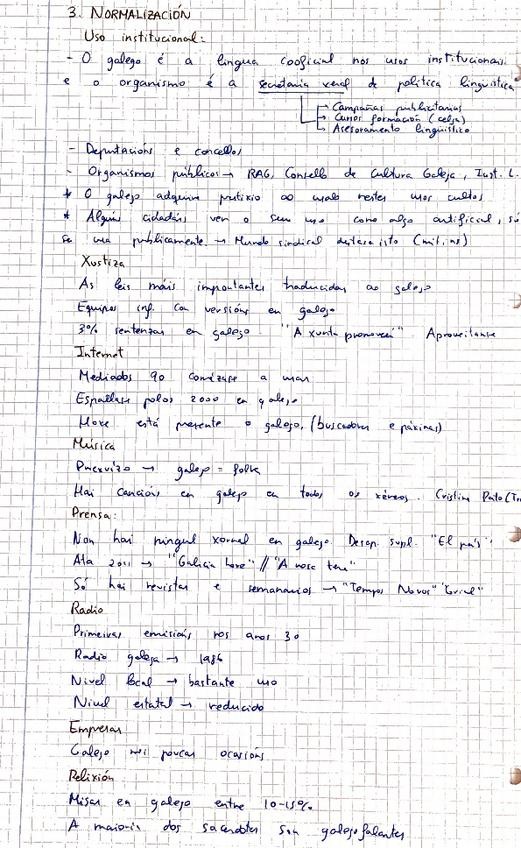 3. NORMALIZACIÓN
Uso institucional:
- O galego é a lingua cooficial nos usos institucionais
e o organismo é a secretaría xeral de política lingüística
Campañas publicitarias
Cursos formación (celga)
Asesoramento lingüístico
- Deputacións e concellos
- Organismos públicos → RAG, Consello de Cultura Galega, Inst. L.
* O galego adquire prestixio ao usalo nestes usos cultos
* Algúns cidadáns ven o seu uso como algo artificial, só
se usa publicamente. → Mundo sindical destaca isto (mitins)
Xustiza
As leis máis importantes traducidas ao galego
Equipos inf. con versións en galego
3% sentenzas en galego. "A xunta promoverá" Aproveitanse
Internet
Mediados 90 comézase a usar
Espállase polos 2000 en galego
Hoxe está presente o galego. (buscadores e páxinas)
Música
Prexuízo → galego = folk
Hai cancións en galego en todos os xéneros. Cristina Pato
Prensa:
Non hai ningún xornal en galego. Desap. supl. "El país".
Ata 2011 → "Galicia hoxe" // "A nosa terra"
Só hai revistas e semanarios → "Tempos Novos"
Radio
Primeiras emisións nos anos 30
Radio galega → 1986
Nivel local → bastante uso
Nivel estatal → reducido
Empresas
Galego moi poucas ocasións
Relixión
Misas en galego entre 10-15%
A maioría dos sacerdotes son galegofalantes